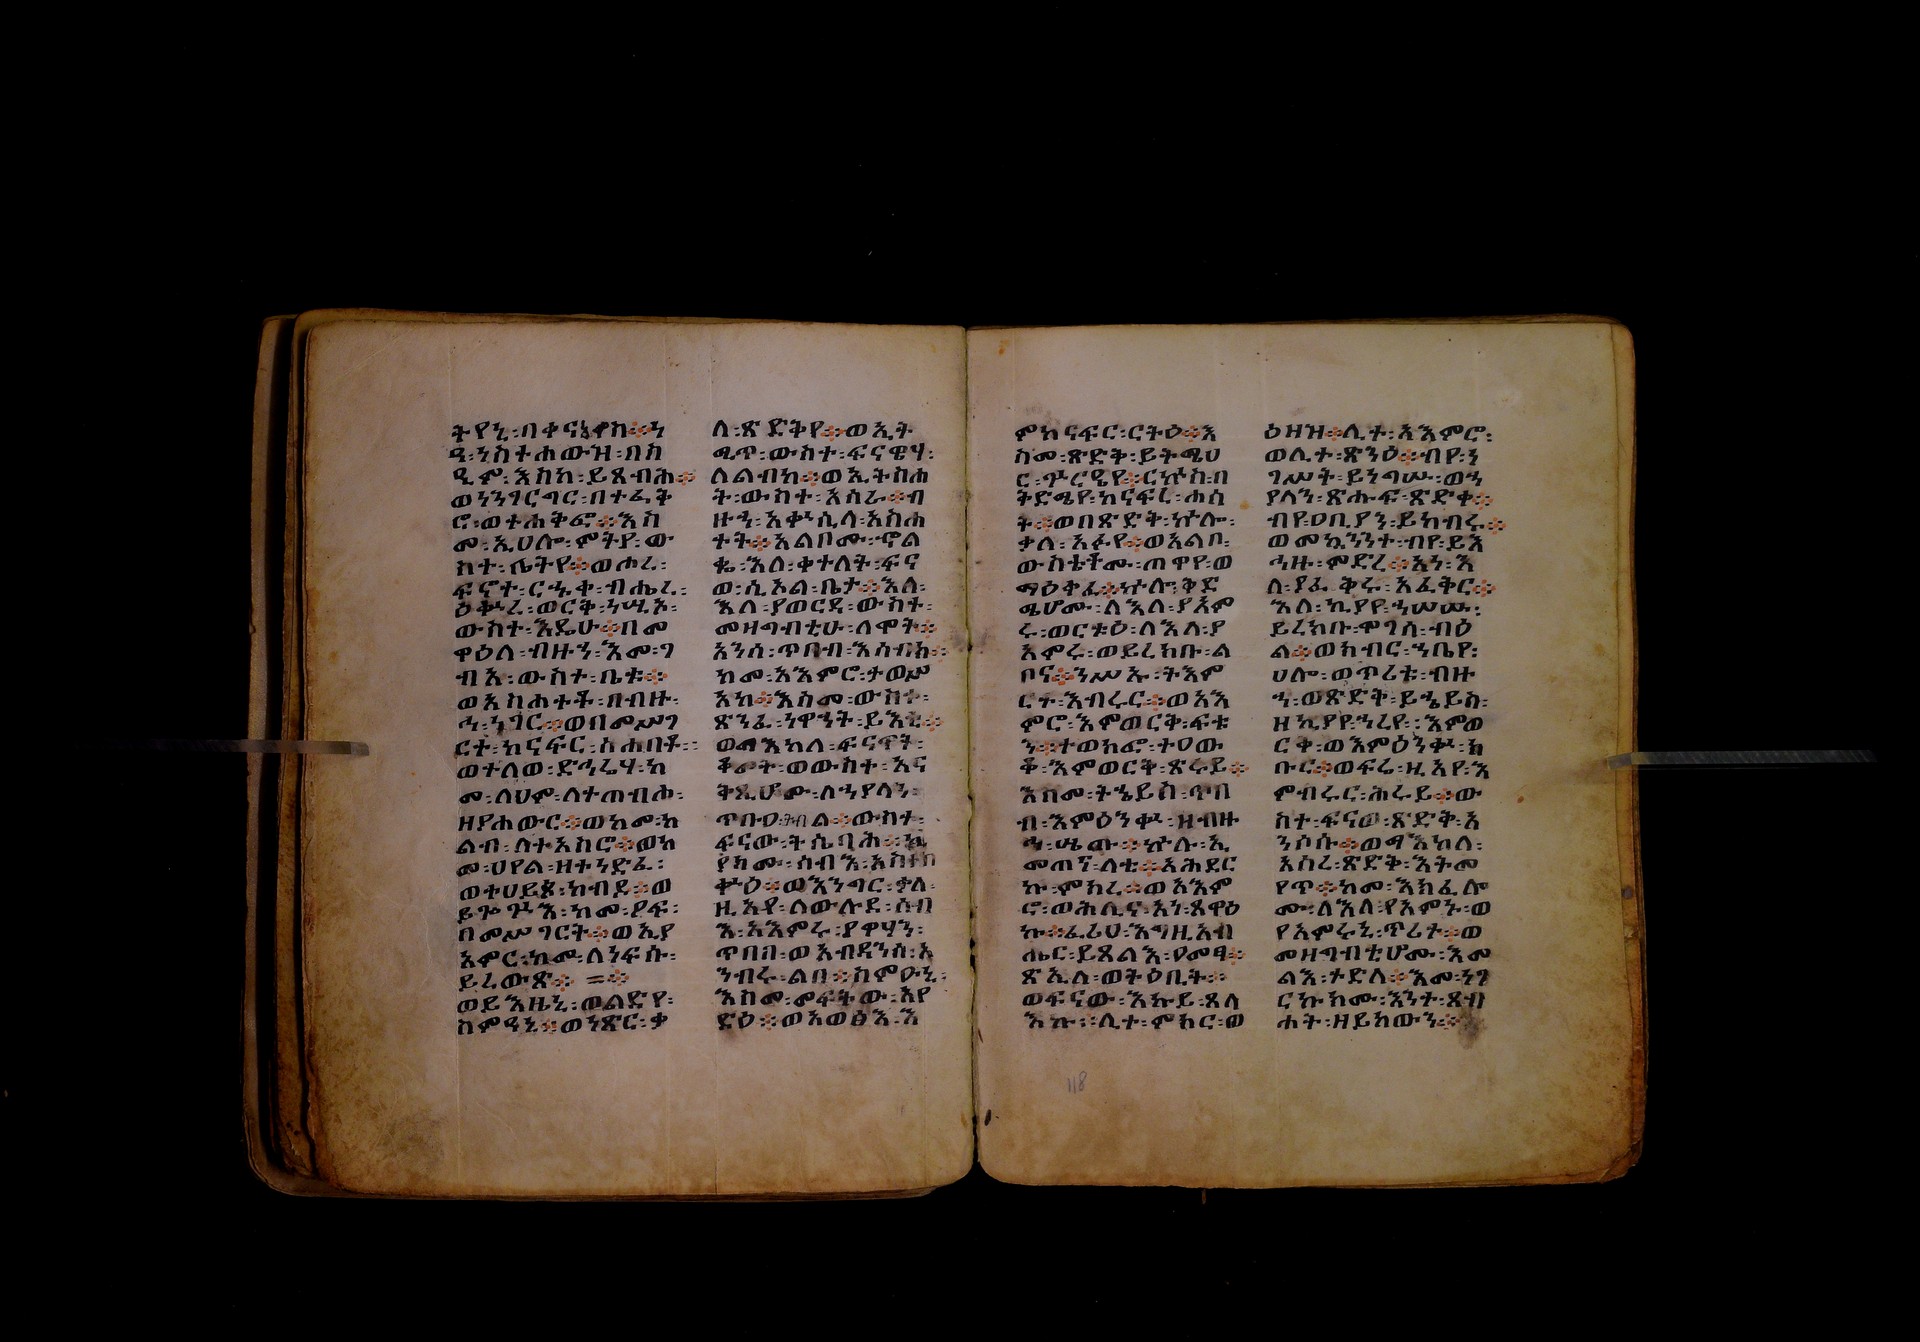 ትየኒ፡በቀናንዋከ፨ነ
ዓ፡ንስተሐውዝ፡በከ
ዲም፡እስከ፡ይጸብሕ፨
ወንንገርጓር፡በተፈቅ
ሮ፡ወተሐቅፎ፨እስ
መ፡ኢሀሎ፡ምትየ፡ው
ስተ፡ቤትየ፨ወሖረ፡
ፍኖተ፡ርኁቀ፡ብሔረ፡
ዕቍረ፡ወርቅ፡ነሢኦ፡
ውስተ፡እዴሁ፨በመ
ዋዕለ፡ብዙን፡እመ፡ገ
ብአ፡ውስተ፡ቤቱ፨
ወአስሐተቶ፡በብዙ፡
ኅ፡ነገር፨ወበመሥገ
ርተ፡ከናፍር፡ስሐበቶ፨
ወተለወ፡ድኅሬሃ፡ከ
መ፡ላህም፡ለተጠብሖ፡
ዘያሐውር፨ወከመ፡ከ
ልብ፡ለተአስሮ፨ወከ
መ፡ሀየል፡ዘተነድፈ፡
ወተሀይጰ፡ከብደ፨ወ
ይጕጕእ፡ከመ፡ዖፍ፡
በመሥገርት፨ወኢያ
አምር፡ከመ፡ለነፍሱ፡
ይረውጽ፨ =፨
ወይእዜኒ፡ወልድየ፡
ስምዓኒ፨ወነጽር፡ቃ
ለ፡ጽድቅየ፨ወኢት
ሚጥ፡ውስተ፡ፍናዊሃ፡
ለልብከ፨ወኢትስሐ
ት፡ውስተ፡አሰራ፨ብ
ዙኃ፡አቍሲላ፡አስሐ
ተት፨አልቦሙ፡ኖል
ቈ፡እለ፡ቀተለት፡ፍና
ወ፡ሲኦል፡ቤታ፨እለ፡
እለ፡ያወርዳ፡ውስተ፡
መዛግብቲሁ፡ለሞት፨
አንሰ፡ጥበብ፡እሰብክ፨
ከመ፡አእምሮ፡ታወሥ
አከ፨እስመ፡ውስተ፡
ጽንፈ፡ነዋኅት፡ይእቲ፨
ወማእከለ፡ፍናዋት፡
ቆመት፡ወውስተ፡አና
ቅጺሆሙ፡ለኃያላን፡
ጥቡዐ፡ትብል፨ውስተ፡
ፍናው፡ትሴባሕ፨ኪ
ያክሙ፡ሰብእ፡አስተበ
ቍዕ፨ወእነግር፡ቃለ፡
ዚአየ፡ለውሉደ፡ሰብ
እ፡አእምሩ፡ያዋሃን፡
ጥበበ፡ወአብዳንሰ፡አ
ንብሩ፡ልበ፨ስምዑኒ፡
እስመ፡መፍትው፡እየ
ድዕ፨ወእወፅእ፡እ
ምከናፍር፡ርትዕ፨እ
ስመ፡ጽድቅ፡ይትሜሀ
ር፡ጕርዔየ፨ርኩስ፡በ
ቅድሜየ፡ከናፍረ፡ሐሰ
ት፨ወበጽድቅ፡ኵሎ፡
ቃለ፡አፉየ፨ወአልቦ፡
ውስቴቶሙ፡ጠዋየ፡ወ
ማዕቅፈ፨ኵሎ፡ቅድ
ሜሆሙ፡ለእለ፡ያአም
ሩ፡ወርቱዕ፡ለእለ፡ያ
አምሩ፡ወይረክቡ፡ል
ቦና፨ንሥኡ፡ትእም
ርተ፡እብሩር፨ወአእ
ምሮ፡እምወርቅ፡ፍቱ
ን፨ተወከሎ፡ተዐው
ቆ፡እምወርቅ፡ጽሩይ፨
እስመ፡ትኄይስ፡ጥበ
ብ፡እምዕንቍ፡ዘብዙ
ኅ፡ሤጡ፨ኵሉ፡ኢ
መጠና፡ላቲ፨አሕደር
ኩ፡ምክረ፨ወአእም
ሮ፡ወሕሊና፡አነ፡ጸዋዕ
ኩ፨ፈሪሀ፡እግዚአብ
ሔር፡ይጸልእ፡ዐመፃ፨
ጽእለ፡ወትዕቢት፨
ወፍናው፡እኩይ፡ጸላ
እኩ፨ሊተ፡ምክር፡ወ
ዕዘዝ፨ሊተ፡አእምሮ፡
ወሊተ፡ጽንዕ፨ብየ፡ነ
ገሥት፡ይነግሡ፡ወኃ
ያላን፡ጽሑፍ፡ጽድቀ፨
ብየ፡ዐቢያን፡ይከብሩ፨
ወመኳንንት፡ብየ፡ይእ
ኅዙ፡ምድረ፨አነ፡እ
ለ፡ያፈቅሩ፡አፈቅር፨
እለ፡ኪያየ፡ኃሠሡ፡
ይረክቡ፡ሞገሰ፡ብዕ
ል፨ወክብር፡ኀቤየ፡
ሀሎ፡ወጥሪቱ፡ብዙ
ኅ፡ወጽድቅ፡ይኄይስ፡
ዘኪያየ፡ኀረየ፡እምወ
ርቀ፡ወእምዕንቍ፡ክ
ቡር፨ወፍሬ፡ዚአየ፡እ
ምብሩር፡ሕሩይ፨ው
ስተ፡ፍናወ፡ጽድቅ፡አ
ንሶሱ፨ወማእከለ፡
አሰረ፡ጽድቅ፡እትመ
የጥ፨ከመ፡እክፈሎ
ሙ፡ለእለ፡የአምኑ፡ወ
የአምሩኒ፡ጥሪተ፨ወ
መዛግብቲሆሙ፡እመ
ልእ፡ተድላ፨እመ፡ነገ
ርኩክሙ፡እንተ፡ጸብ
ሐት፡ዘይከውን፨
118